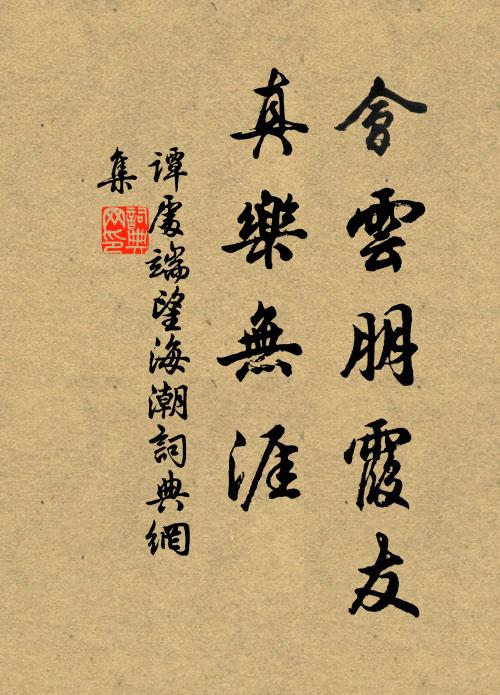 會雲朋霞友
真樂無涯
譚處端望海潮詞典網
集
詞典网印